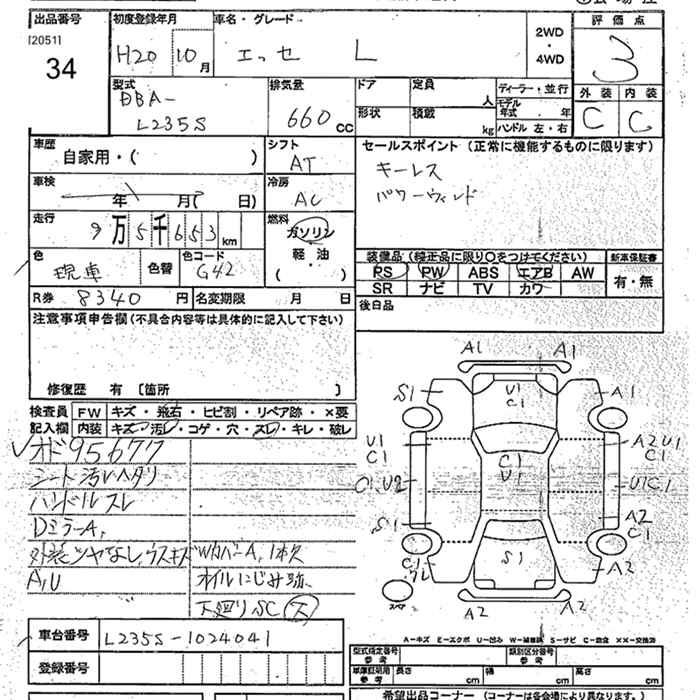 出品番号
[20511]
34
初度登録年月
H20 10月
車名・グレード
エッセ L
2WD
・
4WD
評価点
3
外装 内装
C C
型式
DBA-
L235S
排気量
660 cc
ドア
定員
人
形状
積載
kg
ディーラー・並行
モデル年式 年
ハンドル 左・右
車歴
自家用・( )
シフト
AT
セールスポイント (正常に機能するものに限ります)
キーレス
パワーウィンド
車検
年 月( 日)
冷房
AC
走行
9万5千653km
燃料
ガソリン
軽・油
( )
色
現車
色替
色コード
G42
装備品 (純正品に限り○をつけてください)
PS PW ABS エアB AW
SR ナビ TV カワ
新車保証書
有・無
R券 8340円
名変期限 月 日
後日品
注意事項申告欄(不具合内容等は具体的に記入して下さい)
修復歴 有 〔箇所 〕
検査員記入欄
FW キズ・飛石・ヒビ割・リペア跡・×要
内装 キズ・汚レ・コゲ・穴・スレ・キレ・破レ
オド95677
シート汚レヘタリ
ハンドルスレ
Dミラー A,
外装ツヤなし,ウスキズ
A,U
オイルにじみ
下廻りSC
A1 A1
S1 U1 C1 A1
U1 C1 C1 U1 A2U1 C1
U2 U1C1
S1 A2 C1
C1 S1
A2 A2
スペア
A-キズ E-エクボ U-凹み W-補修跡 S-サビ C-腐食 ××-交換済
車台番号 L235S-1024041
登録番号
型式指定番号 参考
類別区分番号 参考
車庫証明用 参考
長さ cm
幅 cm
高さ cm
希望出品コーナー (コーナーは各会場により異なります。)